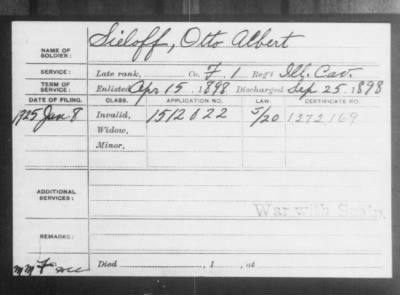 Sieloff, Otto Albert
NAME OF SOLDIER:
SERVICE: Late rank, Co. F, 1 Reg't Ill. Cav.
TERM OF SERVICE: Enlisted Apr 15, 1898 Discharged Sep 25, 1898
DATE OF FILING. CLASS. APPLICATION NO. LAW. CERTIFICATE NO.
1925 Jan 8 Invalid, 1512022 5/20 1272169
Widow,
Minor,
ADDITIONAL SERVICES:
War with Spain.
REMARKS:
Died , 1 , at